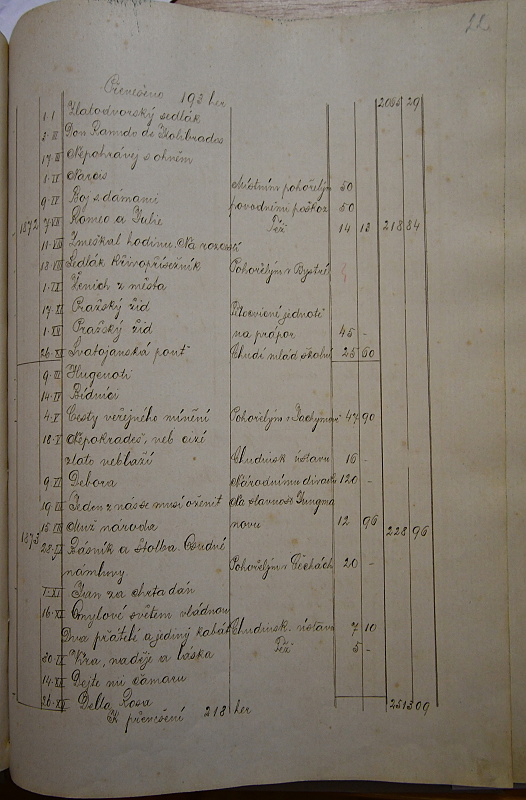 22
Přenešeno 193 her 2065 29
1·I Zlatodvorský sedlák
2·II Don Ranudo de Kolibrados
17·III Nepohrávej s ohněm
1·IV Narcis Místním pohořelým 50
9·V Boj s dámami povodněmi poškoz 50
1872 7·VII Romeo a Julie Též 14 13 218 84
11·VIII Zmeškal hodinu. Na rozcestí
18·VIII Sedlák křivopřísežník Pohořelým v Bystré
1·IX Ženich z města
17·XI Pražský žid Tělocvičné jednotě
1·XII Pražský žid na prápor 45 -
26·XII Svatojanská pouť Chudé mlád. školní 25 60
9·III Hugenoti
14·IV Bídníci
4·V Cesty veřejného mínění Pohořelým v Jáchymově 47 90
18·V Nepokradeš, neb cizí
zlato neblaží Chudinsk. ústavu 16 -
9·VI Debora Národnímu divadlu 120 -
19·VII Jeden z nás se musí oženit Na slavnost Jungma
1873 15·VIII Muž národa novu 12 96 228 96
28·IX Básník a Stolba. Bludné
námluvy. Pohořelým v Čechách 20 -
1·XI Ivan za chrta dán
16·XI Omylové světem vládnou
Dva přátelé a jediný kabát Chudinsk. ústavu 7 10
30·XI Víra, naděje a láska Též 5 -
14·XII Dejte mi čamaru
26·XII Della Rosa 2513 09
K přenešení 218 her